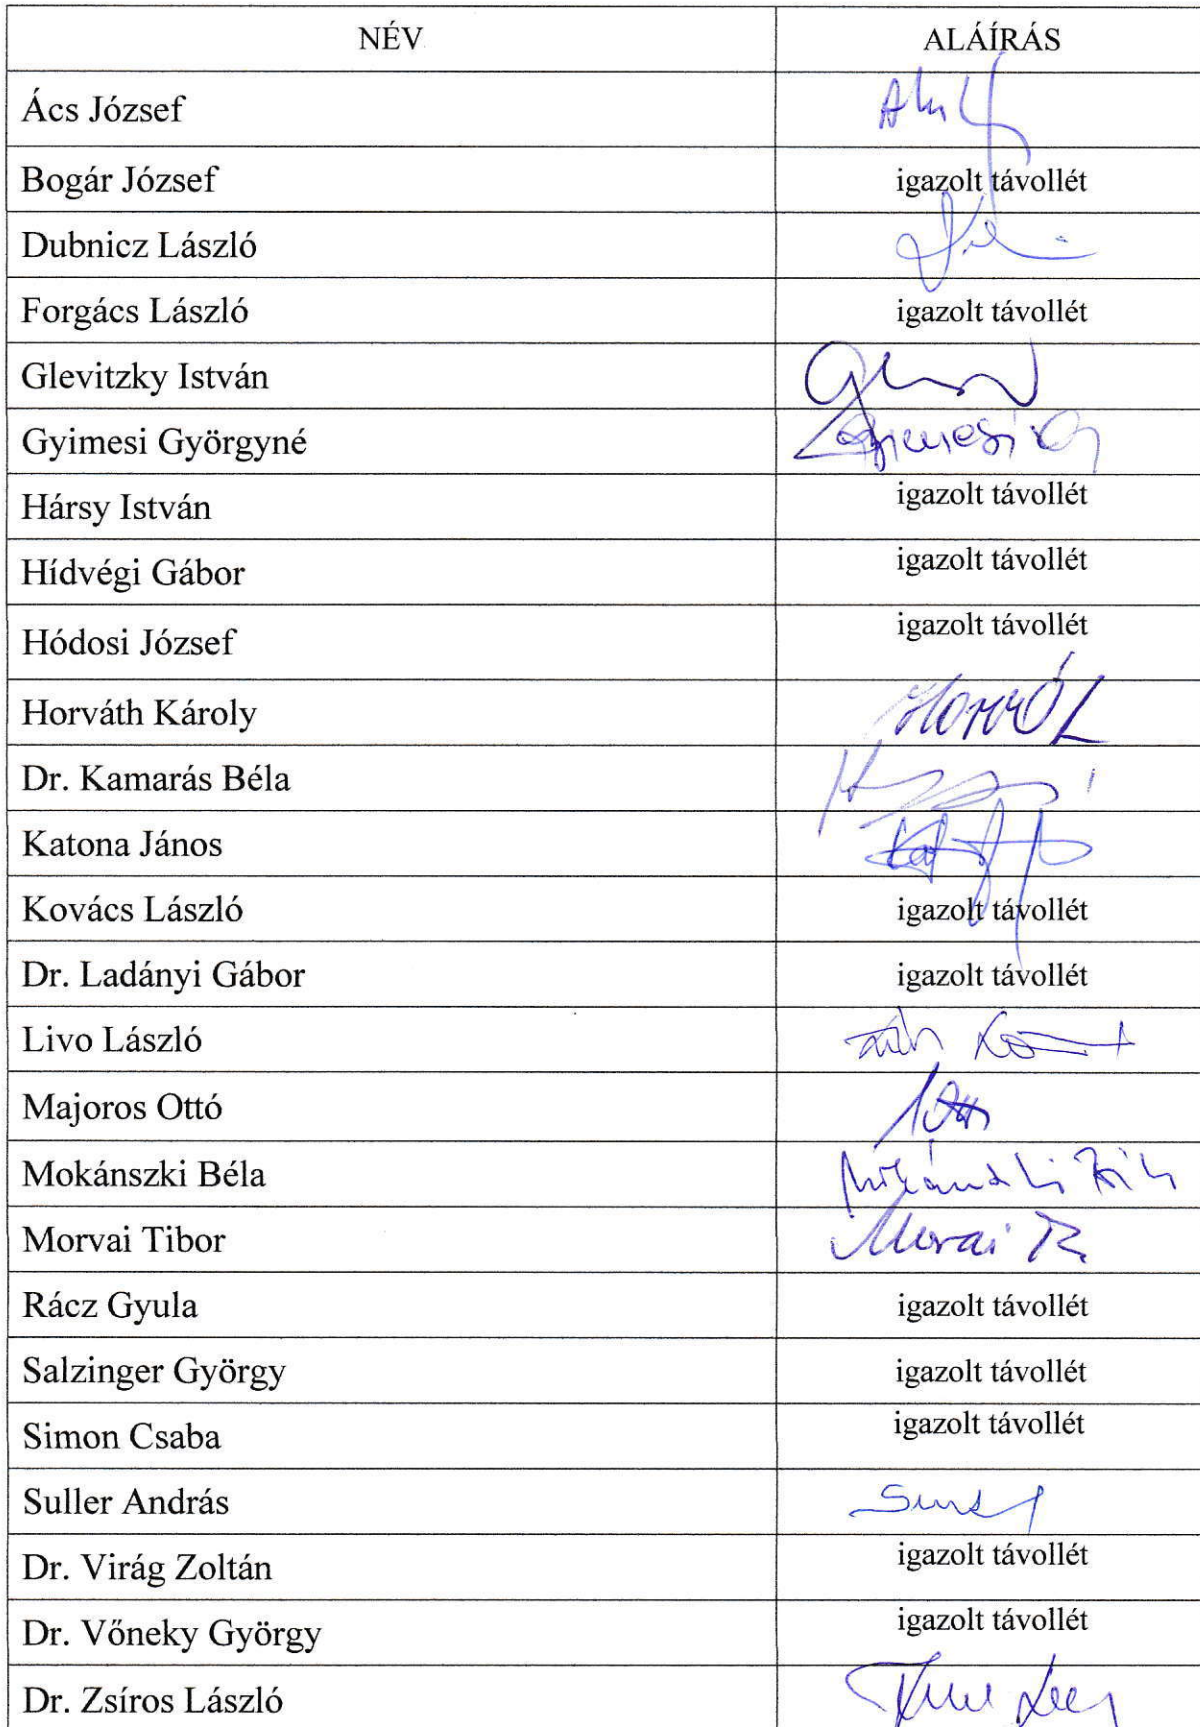 NÉV ALÁÍRÁS
Ács József
Bogár József igazolt távollét
Dubnicz László
Forgács László igazolt távollét
Glevitzky István
Gyimesi Györgyné Gyimesi
Hársy István igazolt távollét
Hídvégi Gábor igazolt távollét
Hódosi József igazolt távollét
Horváth Károly
Dr. Kamarás Béla
Katona János
Kovács László igazolt távollét
Dr. Ladányi Gábor igazolt távollét
Livo László
Majoros Ottó
Mokánszki Béla
Morvai Tibor Morvai T
Rácz Gyula igazolt távollét
Salzinger György igazolt távollét
Simon Csaba igazolt távollét
Suller András
Dr. Virág Zoltán igazolt távollét
Dr. Vőneky György igazolt távollét
Dr. Zsíros László